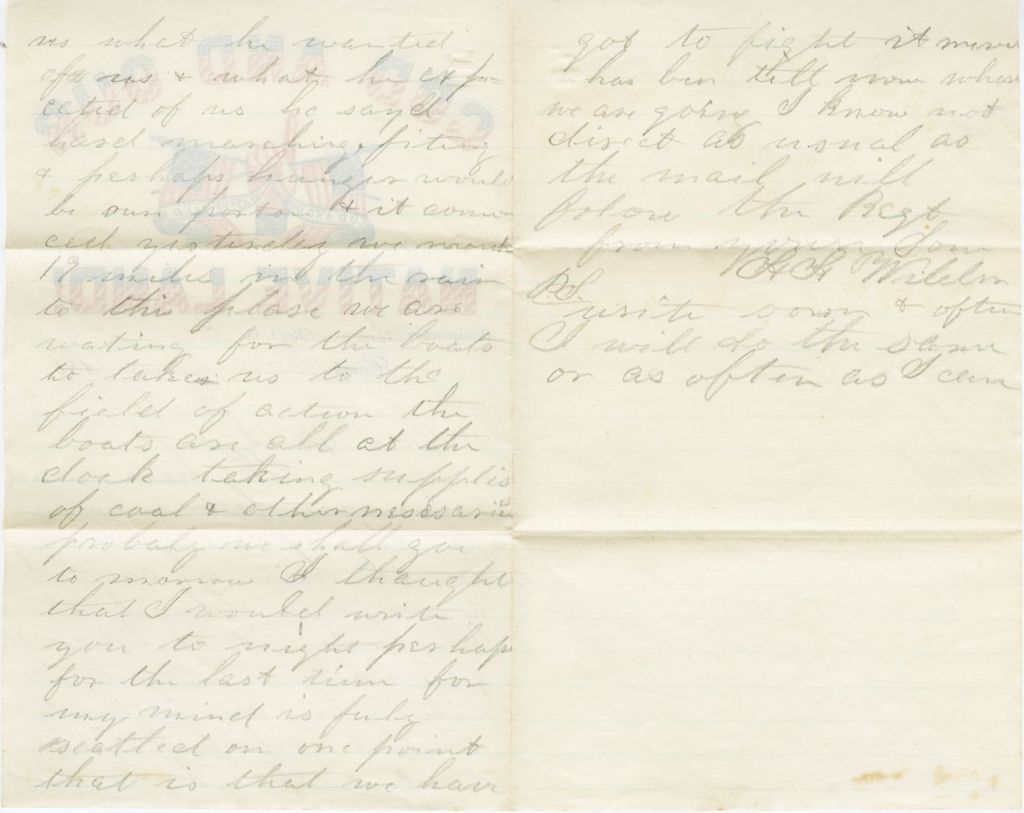 us what he wanted
of us & what he exp-
ected of us he sayd
hard marching, fiting
& perhaps hunger would
be our portion & it comm
ced yisterday we march
19 miles in the rain
to this plase we are
wating for the boats
to take us to the
field of action the
boats are all at the
doak taking supplis
of coal & other nessesaries
probaly we shall go
to morrow I thaught
that I would write
you to night perhaps
for the last time for
my mind is fuly
seatled on one point
that is that we have
got to fight it never
has ben till now whare
we are going I know not
direct as usual as
the mail will
folow the Regt
from your Son
H H
P.S.
write soon & often
I will do the same
or as often as I can
OUR AND OUR
NATIVE LAND